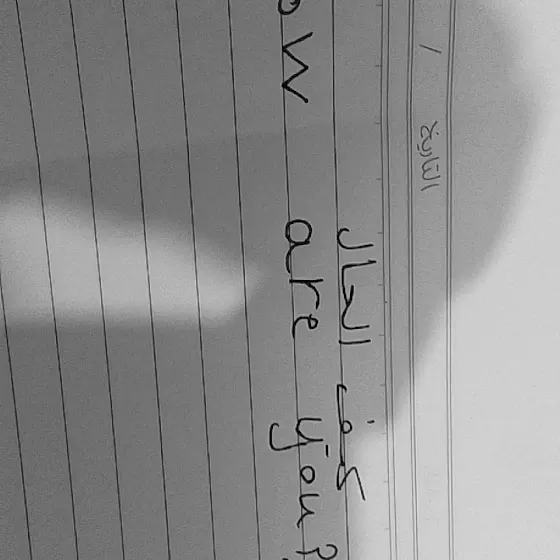 التاريخ /
كيف الحال
ow are you?